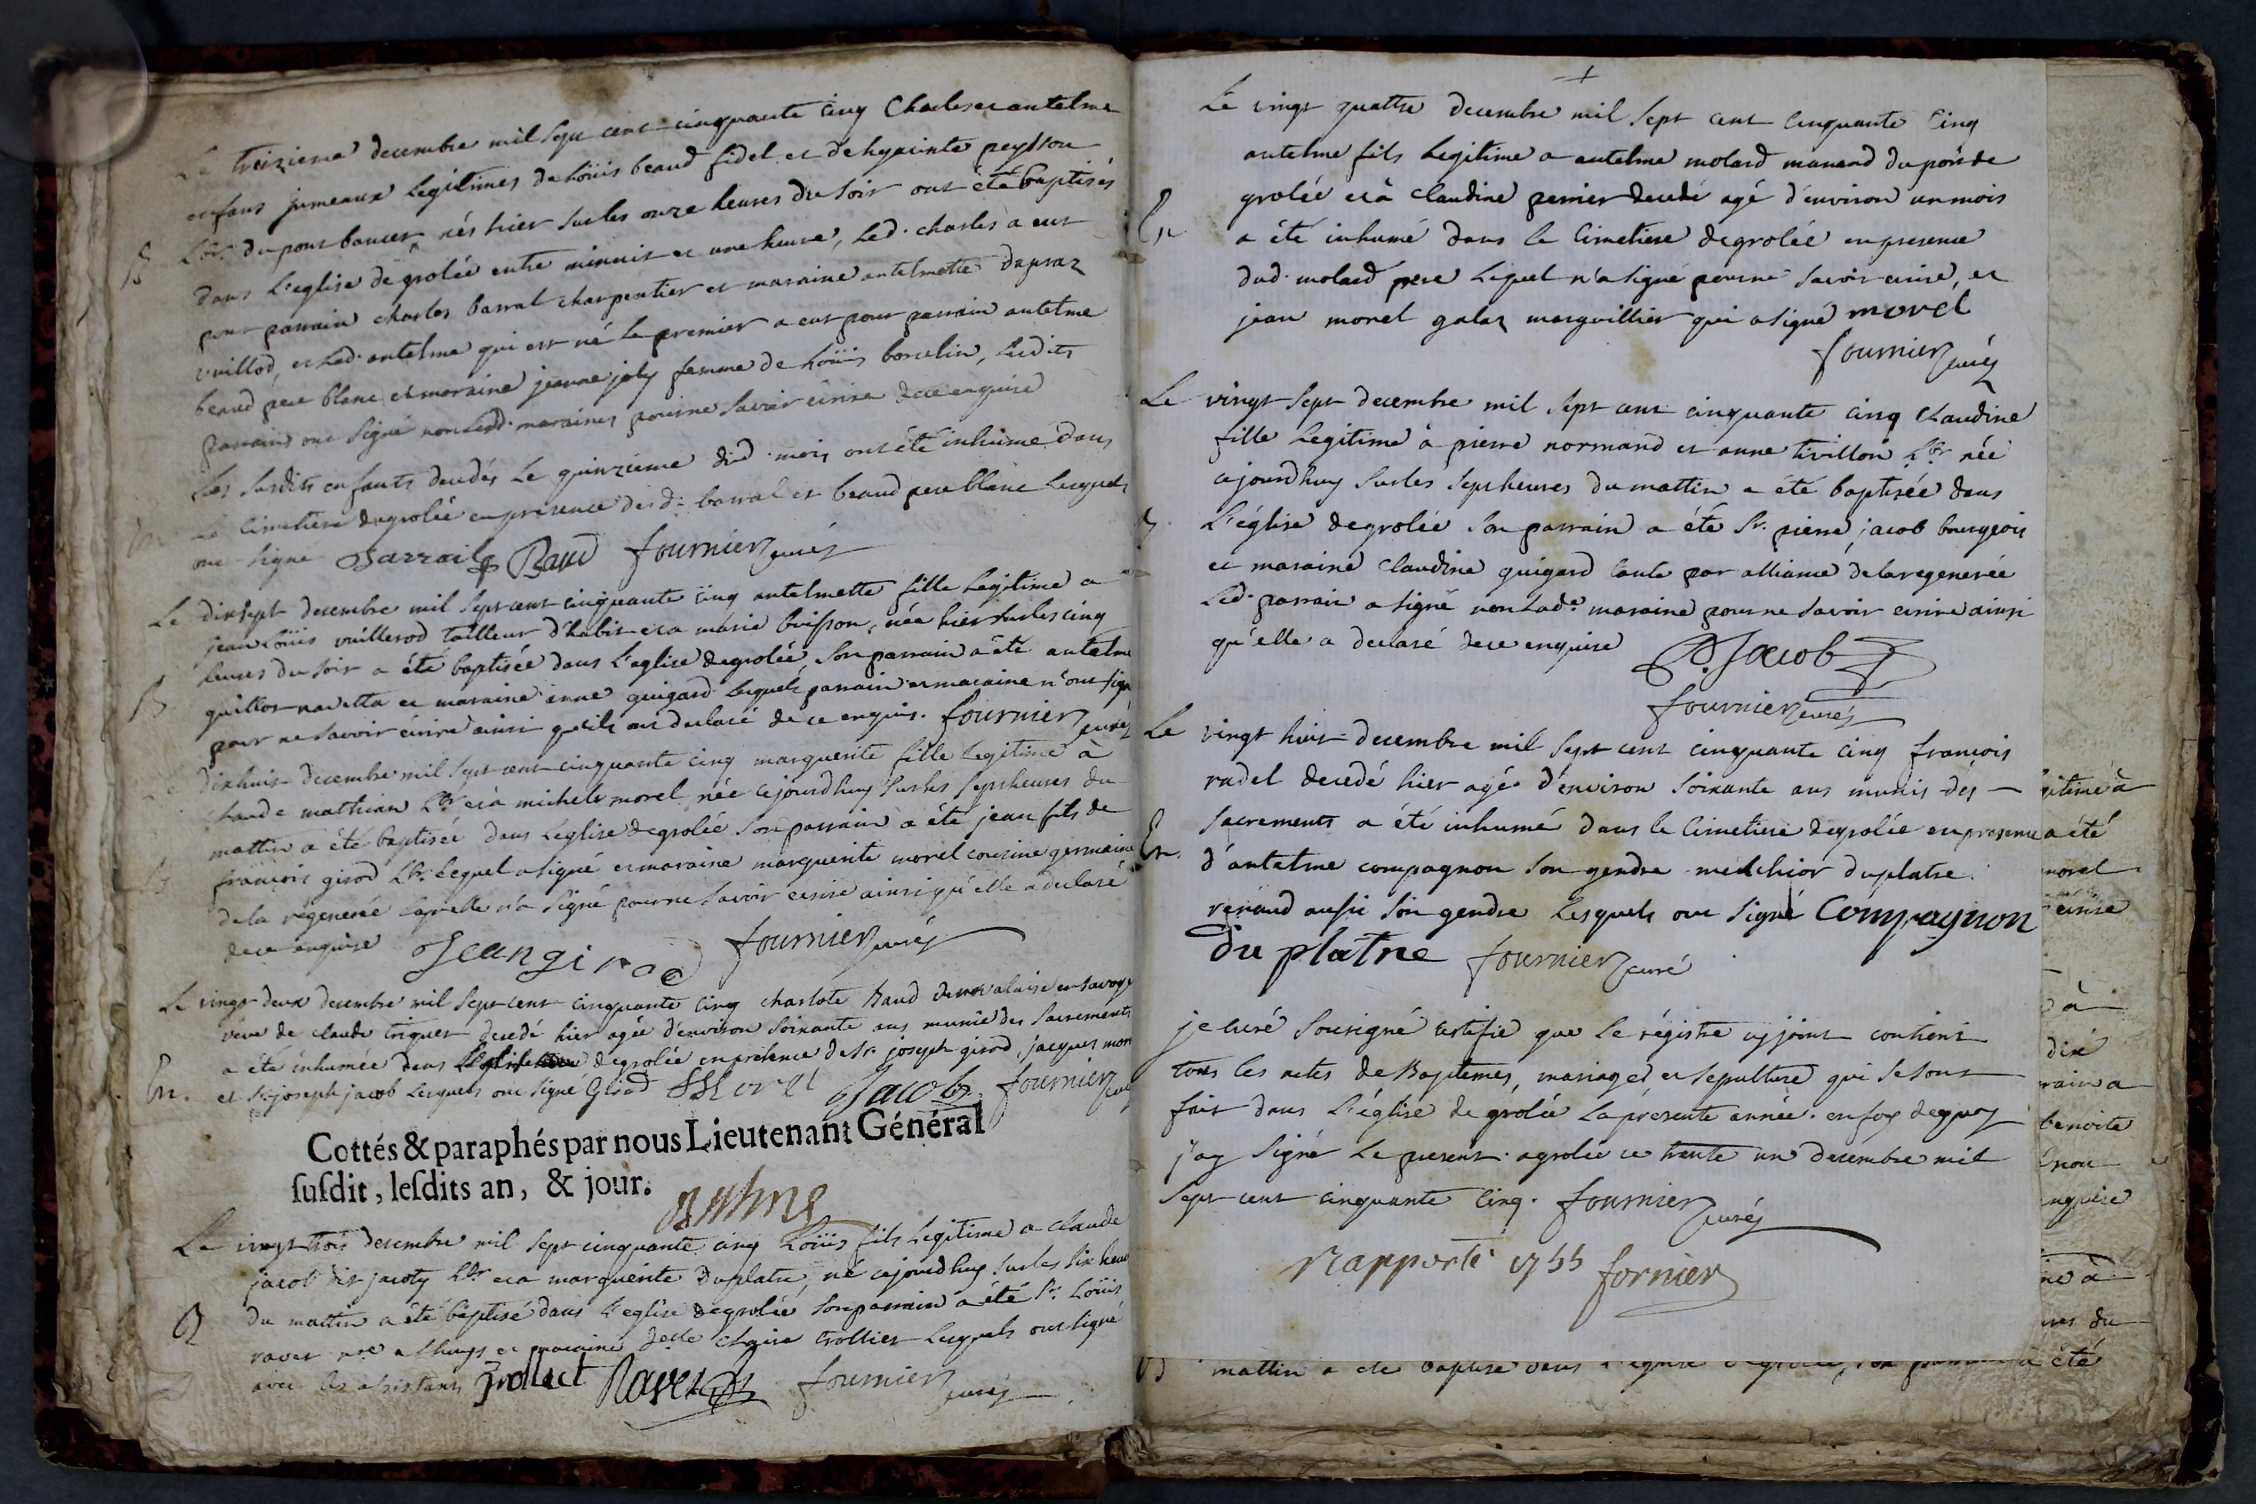 Le treizieme decembre mil sept cent cinquante cinq Charles et antelme
enfans jumeaux legitimes de Loüis beaud fidel et de hyacinte peysson
Lbrs du pont bancet nés hier sur les onze heures du soir ont été baptisés
B dans l'eglise de grolée entre minuit et une heure, led. charles a eut
pour parrain charles barral charpentier et maraine antelmette dupraz
vuillod, et led. antelme qui est né le premier a eut pour parrain antelme
beaud pere blanc et maraine jeanne joly femme de Loüis borcelin, lesdits
parrains ont signé non lesd. maraines pour ne savoir ecrire de ce enquise
Les susdits enfants decedés le quinzieme dud. mois ont été inhumé dans
En. le cimetiere de grolée en présence desd: barral et beaud pere blanc lesquels
ont signé Barrail Baud fournier curé
Le dix sept decembre mil sept cent cinquante cinq antelmette fille legitime a
jean Loüis vuillerod tailleur d'habit et a marie buisson, née hier sur les cinq
heures du soir a été baptisée dans l'eglise de grolée, son parrain a été antelme
B guillot navetta et maraine anne guigard lesquels parrain et maraine n'ont signé
pour ne savoir écrire ainsi qu'ils ont declaré de ce enquis. fournier curé
Le dix huit decembre mil sept cent cinquante cinq marguerite fille legitime à
claude mathian Lbr et à michele morel née cejourdhuy sur les sept heures du
mattin a été baptisée dans l'église de grolée son parrain a été jean fils de
B françois girod Lbr. lequel a signé et maraine marguerite morel cousine germaine
de la régenerée laquelle n'a signé pour ne savoir ecrire ainsi qu'elle a declaré
de ce enquise Jean girod fournier curé
Le vingt deux decembre mil sept cent cinquante cinq charlote Baud de novalaise en savoye
veuve de claude triquet decedé hier agée d'environ soixante ans munie des sacrements
a été inhumée dans de grolée en présence de Sr. joseph girod, jacques morel
En. et Sr. joseph jacob lesquels ont signé Girod Morel Jacob fournier curé
Cottés & paraphés par nous Lieutenant Général
susdit, lesdits an, & jour.
Le vingt trois decembre mil sept cinquante cinq Loüis fils legitime a claude
jacob dit jacoty Lbr et a marguerite duplatre, né cejourdhuy sur les six heures
du mattin a été baptisé dans l'eglise de grolée, son parrain a été Sr. Loüis
B raver nre a lhuys et maraine delle claire trollier lesquels ont signé
avec les assistans Trolliet Raver fournier curé
+
Le vingt quattre decembre mil sept cent cinquante cinq
antelme fils legitime a antelme molard manand du port de
grolée et à claudine perrier decedé agé d'environ un mois
En a été inhumé dans le cimetiere de grolée en presence
dud. molard pere lequel n'a signé pour ne savoir ecrire, et
jean morel galaz marguillier qui a signé morel
fournier curé
Le vingt sept decembre mil sept cent cinquante cinq claudine
fille legitime à pierre normand et anne tivillon Lbr née
cejourdhuy sur les sept heures du mattin a été baptisée dans
B. l'église de grolée son parrain a été Sr. pierre jacob bourgeois
et maraine claudine guigard tante par alliance de la regenerée
led. parrain a signé non lade. maraine pour ne savoir ecrire ainsi
qu'elle a declaré de ce enquise P. Jacob
fournier curé
Le vingt huit decembre mil sept cent cinquante cinq françois
radel decedé hier agé d'environ soixante ans munis des
sacrements a été inhumé dans le cimetiere de grolée en presence
En. d'antelme compagnon son gendre melchior duplatre
renaud aussi son gendre lesquels ont signé Compagnon
du platre fournier curé
je curé sousigné certifie que le régistre cy joint contient
tous les actes de Baptemes, mariages et sepulture qui se sont
fait dans l'église de grolée la présente année. en foy de quoy
j'ay signé le present. a grolée ce trente un decembre mil
sept cent cinquante cinq. fournier curé
Rapporté 1755 fornier
gitime à
a été
morel
ecrire
à
dixe
rain a
benoite
enquise
né à
heures du
mattin a été baptisé dans l'eglise de grolée, son parrain a été